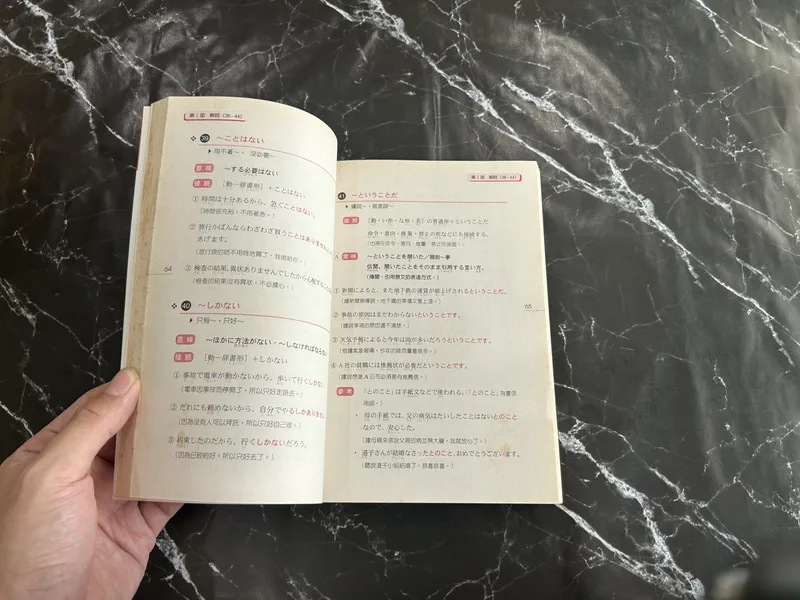 第1部 解説(36-44)
39 ～ことはない
用不著～，沒必要～
意味 ～する必要はない
接続 [動－辞書形]＋ことはない
① 時間は十分あるから、急ぐことはない。
(時間很充裕，不用著急。)
② 旅行かばんならわざわざ買うことはありません。
あげます。
(旅行袋的話不用特地買了，我送給你。)
③ 検査の結果、異状ありませんでしたから心配する
(檢查的結果沒有異狀，不必擔心。)
64
40 ～しかない
只有～，只好～
意味 ～ほかに方法がない・～しなければならない
接続 [動－辞書形]＋しかない
① 事故で電車が動かないから、歩いて行くしかない
(電車因事故而停開了，所以只好走路去。)
② だれにも頼めないから、自分でやるしかありません
(因為沒有人可以拜託，所以只好自己做。)
③ 約束したのだから、行くしかないだろう。
(因為已經約好，所以只好去了。)
第1部 解説(36-44)
41 ～ということだ
據說～、意思是～
接続 [動・い形・な形・名]の普通形＋ということだ
命令、意向、推量、禁止の形などにも接続する。
意味 A ～ということを聞いた／聽到～事
伝聞。聞いたことをそのまま引用する言い方。
(傳聞，引用原文的表達方式。)
① 新聞によると、また地下鉄の運賃が値上げされるということだ。
(據新聞報導說，地下鐵的票價又要上漲。)
② 事故の原因はまだわからないということです。
(據說車禍的原因還不清楚。)
③ 天気予報によると今年は雨が多いだろうということです。
(根據氣象報導，今年的降雨量會很多。)
④ A社の就職には推薦状が必要だということです。
(據說想進A公司必須要有推薦信。)
65
参考 「とのこと」は手紙文などで使われる。(「とのこと」為書信
用語。)
・ 母の手紙では、父の病気はたいしたことはないとのこと
なので、安心した。
(據母親來信說父親的病並無大礙，我就放心了。)
・ 道子さんが結婚なさったとのこと、おめでとうございます。
(聽說道子小姐結婚了，恭喜恭喜。)